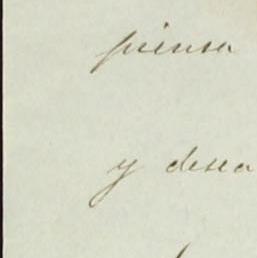 piensa
y desea